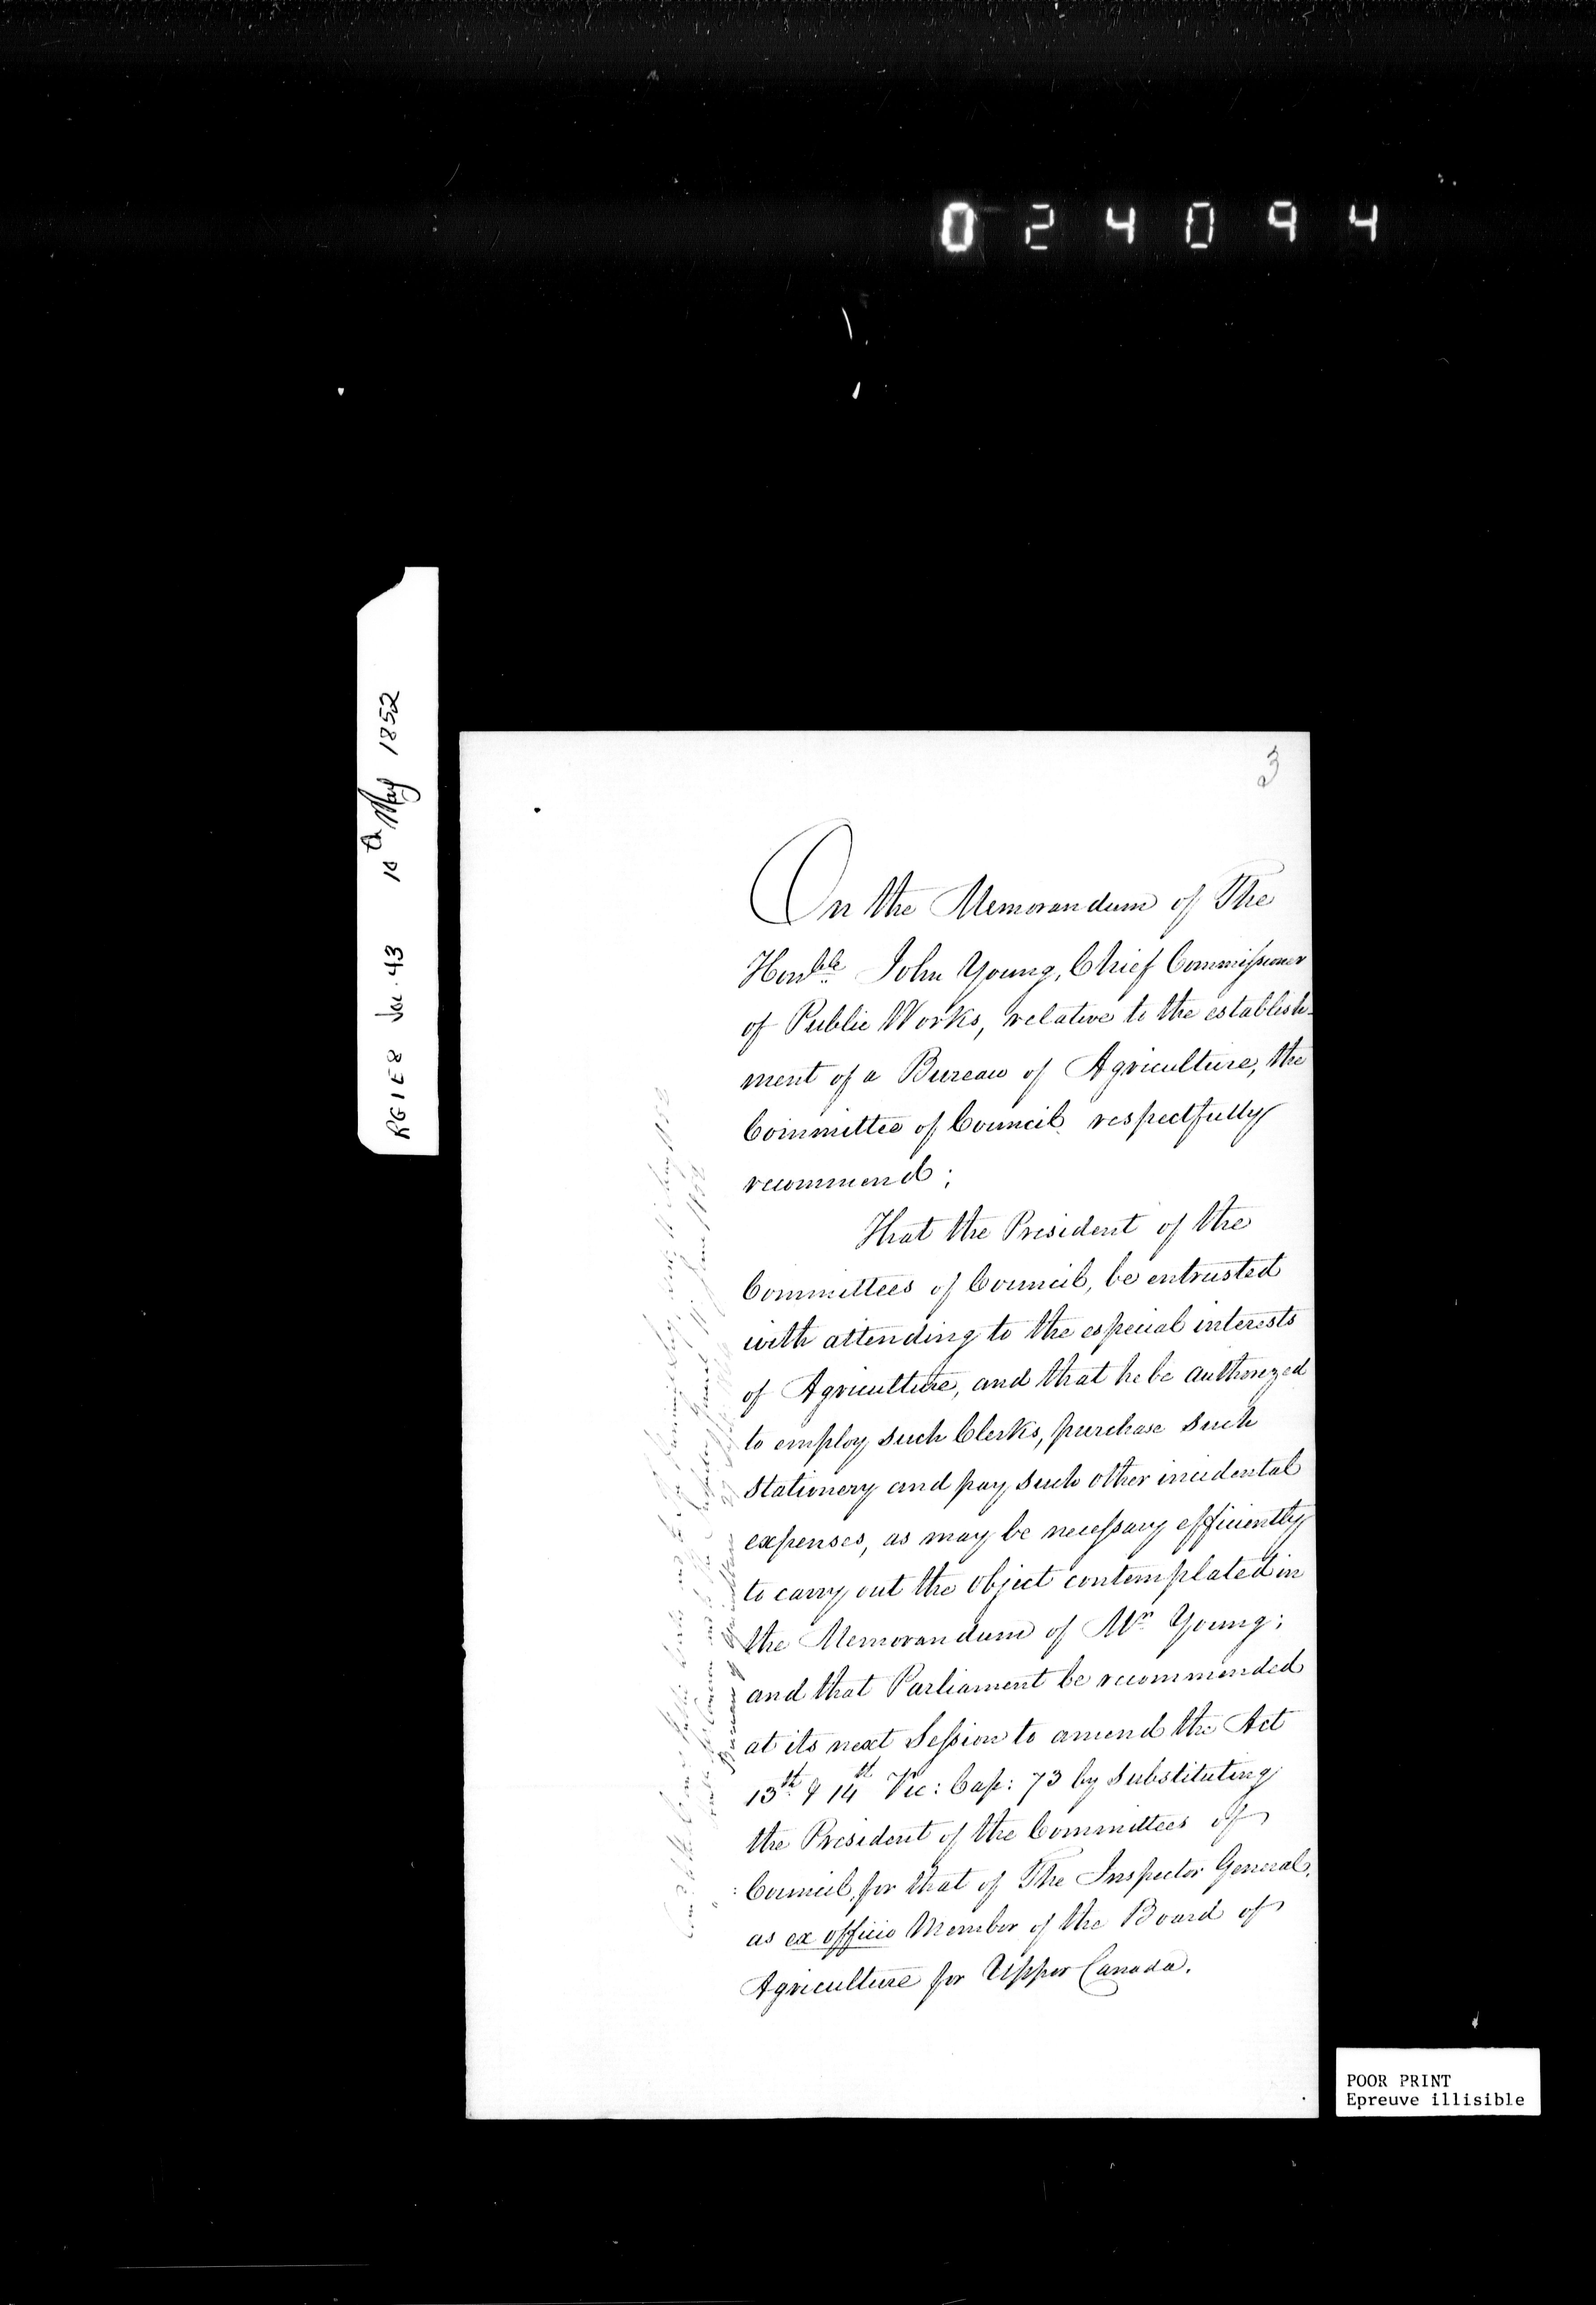 024094
RG 1 E 8 Vol. 43 10th May 1852
3
On the Memorandum of The
Honble John Young, Chief Commissioner
of Public Works, relative to the establish-
ment of a Bureau of Agriculture, the
Committee of Council respectfully
recommend;
That the President of the
Committees of Council, be entrusted
with attending to the especial interests
of Agriculture, and that he be authorized
to employ such Clerks, purchase such
stationery and pay such other incidental
expenses, as may be necessary efficiently
to carry out the object contemplated in
the Memorandum of Mr Young;
and that Parliament be recommended
at its next Session to amend the Act
13th & 14th Vic: Cap: 73 by substituting
the President of the Committees of
Council, for that of The Inspector General,
as ex officio Member of the Board of
Agriculture for Upper Canada.
POOR PRINT
Epreuve illisible